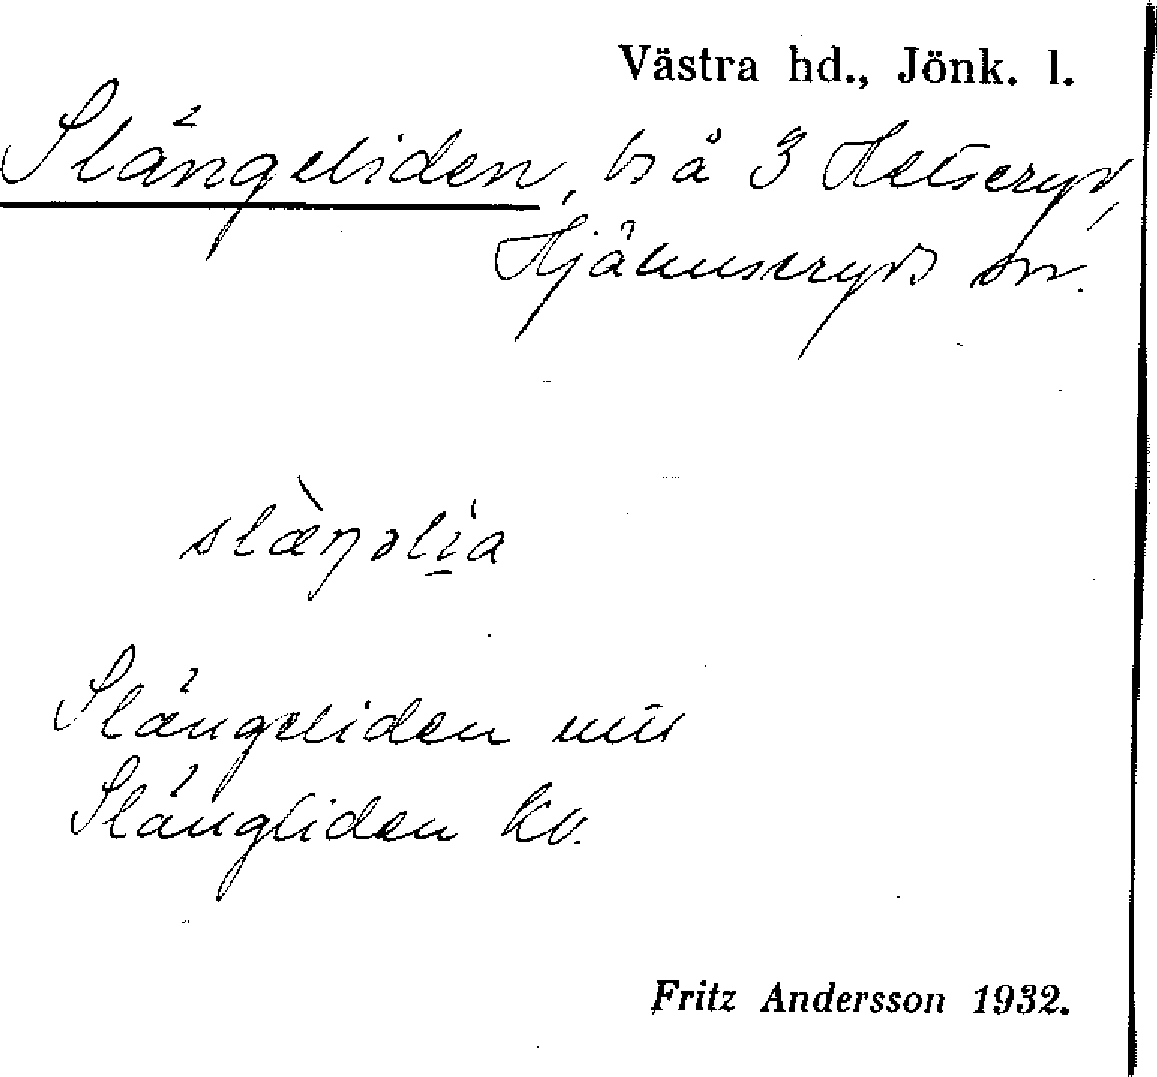 Västra hd., Jönk. l.
Slängeliden, bs å 3 Helseryd,
Hjälmseryds sn.
slæ̀ŋəli̱a
Slängeliden mtl
Slängliden kv.
Fritz Andersson 1932.